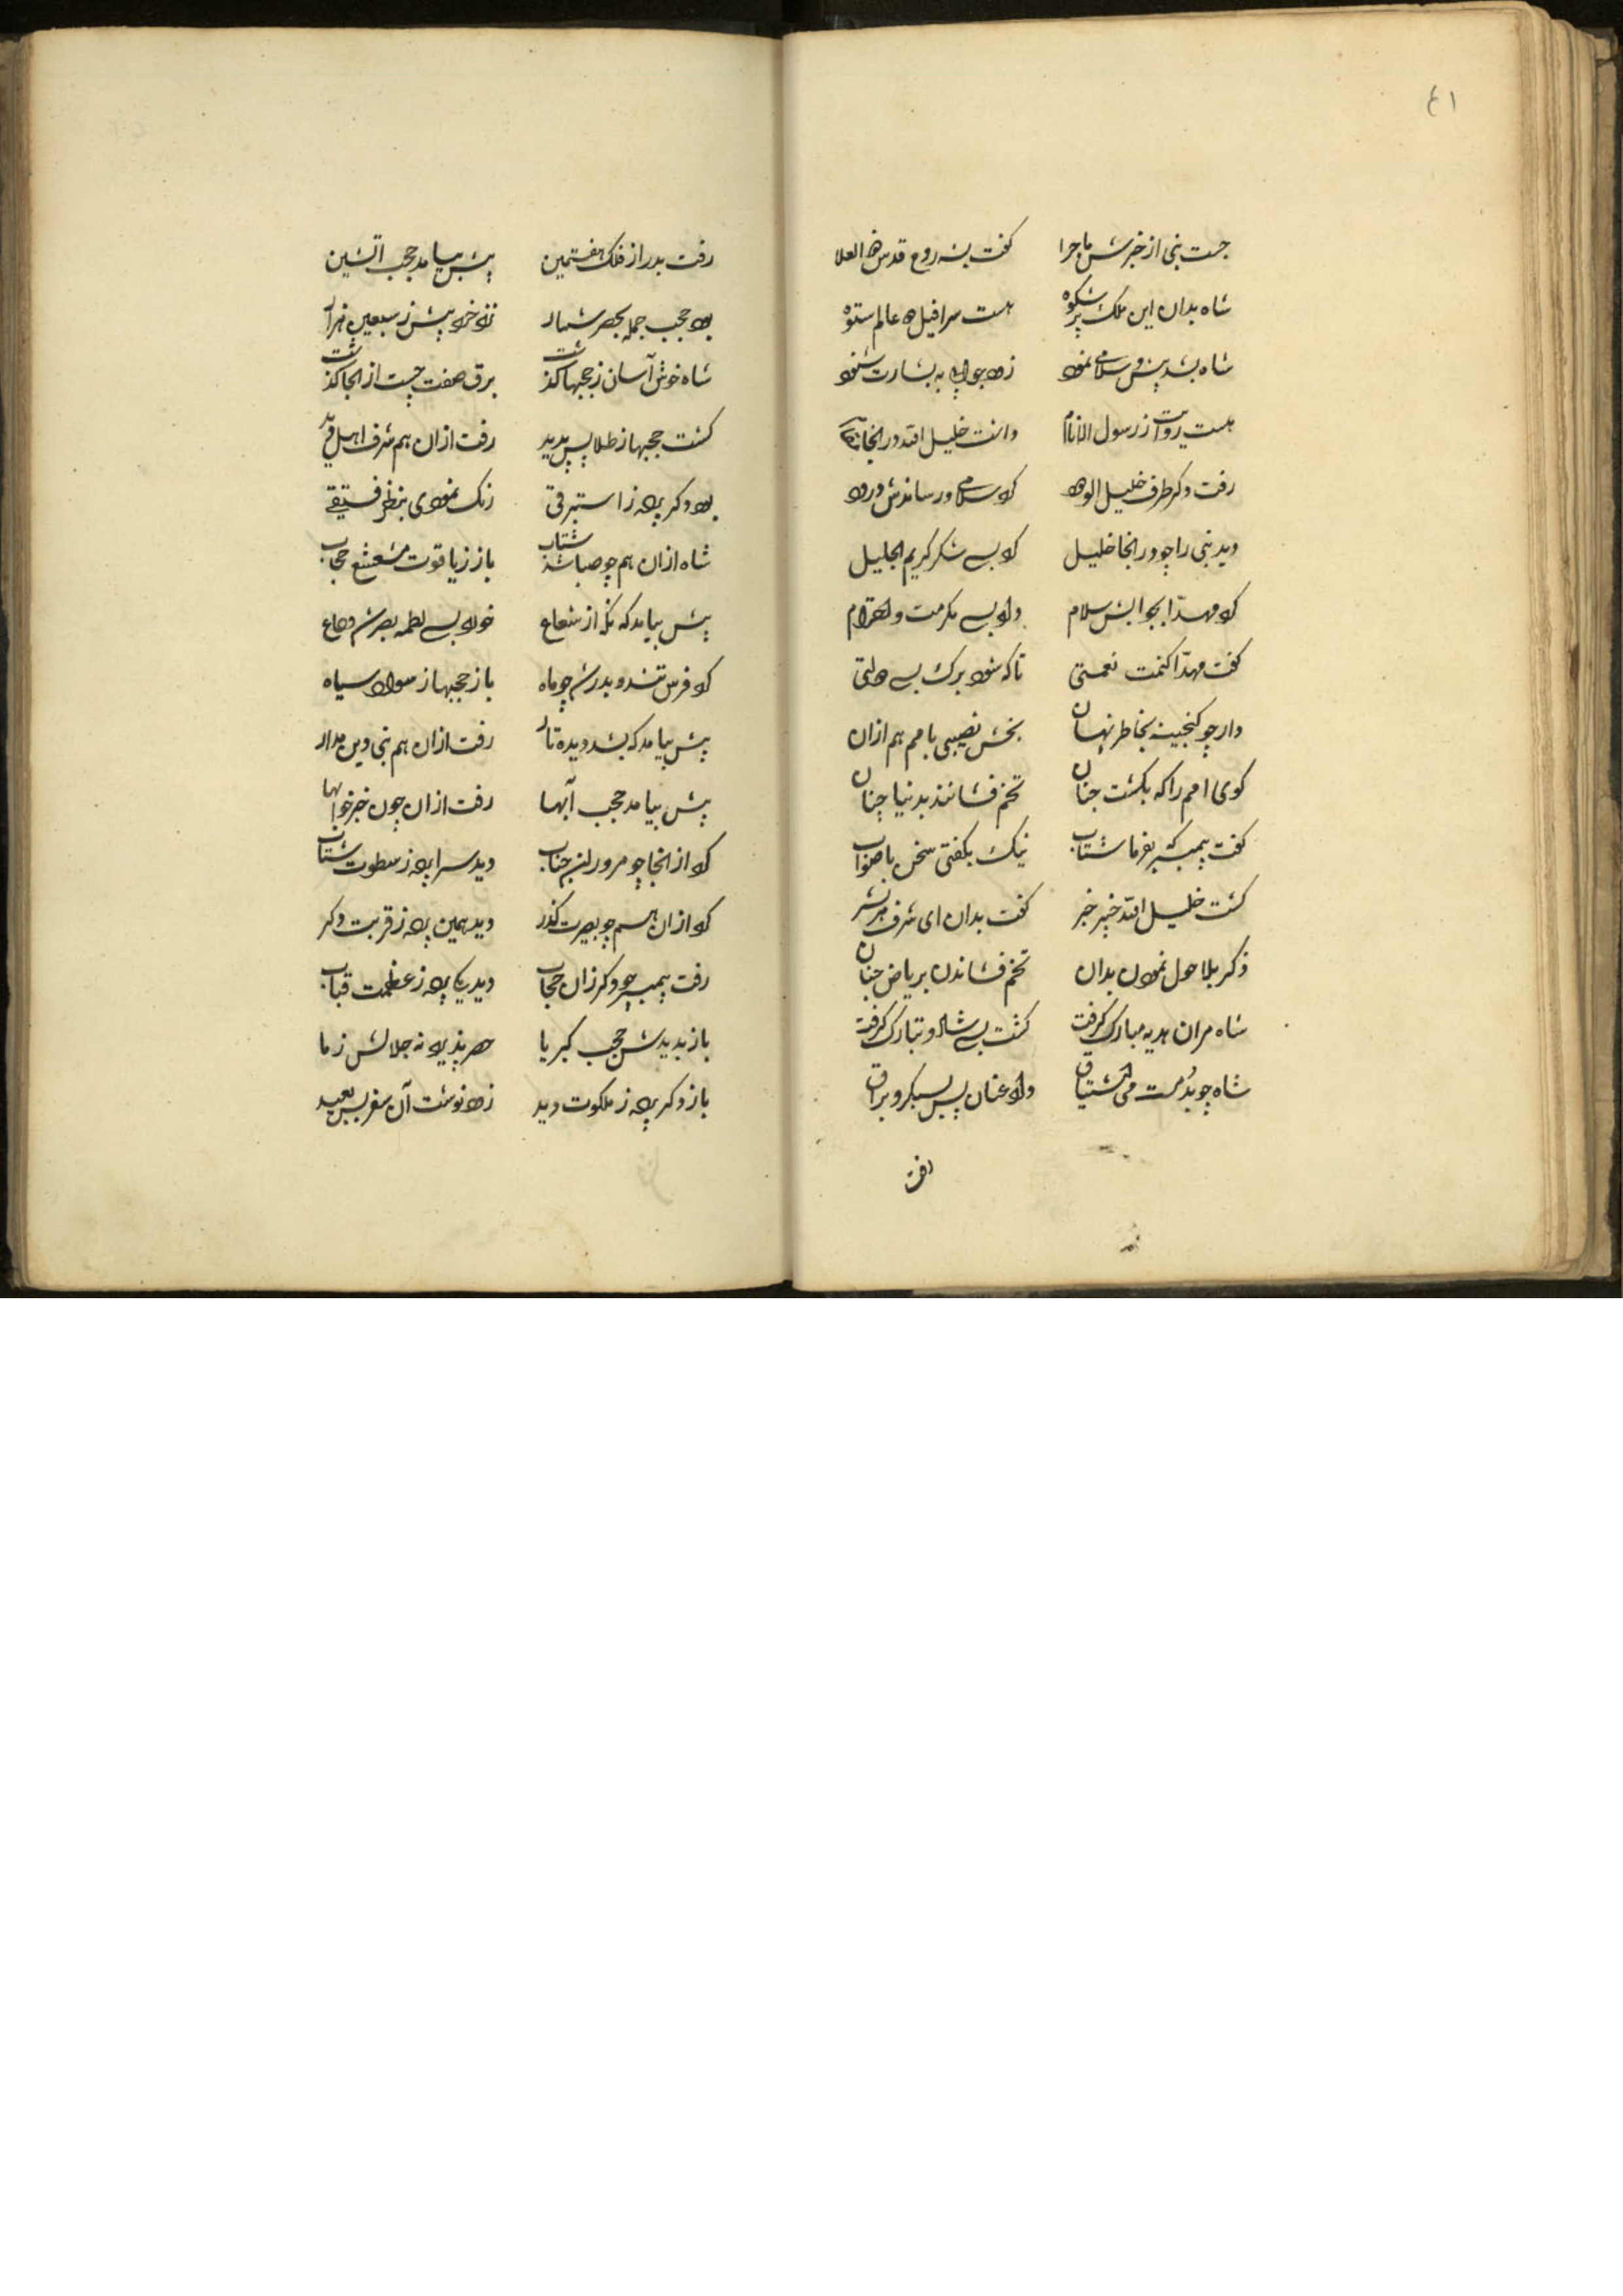 ٤١
جست نبی از خبرش ماجرا گفت بشه روح قدس ذو العلا
شاه بدان این ملک پر شکوه هست سرافیل در عالم ستوه
شاه بشد پیش و سلامی نمود زو جوابی به بشارت شنود
هست روایت ز رسول الانام دانست خلیل الله در انجا
رفت دکر طرف خلیل الودود کرد سلامی و رساندش درود
دید نبی را چو در انجا خلیل کرد بسی شکر کریم الجلیل
کرد مهدا بجوابش سلام داد بسی مکرمت و احترام
کفت مهدا کنمت نعمتی تا که شود برک بسی دولتی
دار چو کنجینه بخاطر نهان بخش نصیبی بامم هم ازان
کوی امم را که بکشت جنان تخم فشانند بدنیا چنان
کفت پیمبر که بفرما شتاب نیک بکفتی سخن باصواب
کشت خلیل الله خبیر خبر کفت بدان ای شرف هر بشر
ذکر بلاحول نمودن بدان تخم فشاندن بریاض جنان
شاه مران هدیه مبارک کرفت کشت بسی شاد و تبارک کرفت
شاه چو بد مست می اشتیاق داد عنان پس بسبکرو براق
رفت
رفت بدر از فلک هفتمین پیش بیامد حجب اتشین
بود حجب جمله بحصر شمار نزد خرد بیش ز سبعین هزار
شاه خوش آسان ز حجبها کذشت برق صفت چست از انجا کذشت
کشت حجبها ز طلا پس پدید رفت ازان هم شرف اهل دید
بود دکر پرده ز استبرقی رنک نمودی بنظر فستقی
شاه ازان هم چو صبا شد شتاب باز ز یاقوت مشعشع حجاب
پیش بیامد که نکه از شعاع خورد بسی لطمه بصر شد وداع
کرد فرس تند و بدر شد چو ماه باز حجبها ز سواد سیاه
پیش بیامد که بشد دیده تار رفت ازان هم نبی دین مدار
پیش بیامد حجب آبها رفت ازان چون خبر خوابها
کرد از انجا چو مرور ان جناب دید سراپرده ز سطوت شتاب
کرد ازان هم چو بصیرت کذر دید همین پرده ز قربت دکر
رفت پیمبر چو دکر زان حجاب دید یکی پرده ز عظمت قباب
باز بدیدش حجب کبریا حصر پذیرد نه جلالش ز ما
باز دکر پرده ز ملکوت دید زود نوشت آن سفر بس بعید